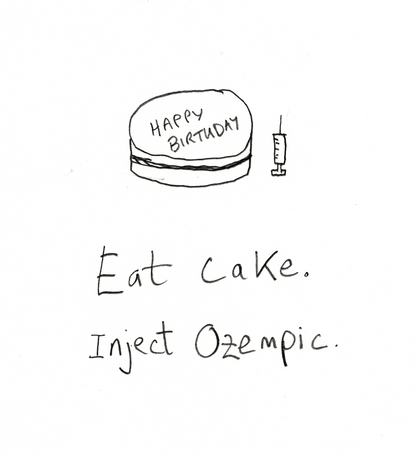 HAPPY
BIRTHDAY
Eat Cake.
Inject Ozempic.